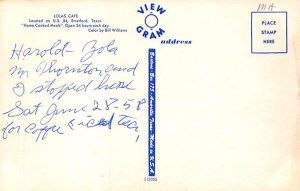 LOLAS CAFE
Located on U.S. 54, Stratford, Texas
"Home Cooked Meals". Open 24 hours each day.
Color by Bill Williams
VIEW
GRAM
address
PLACE
STAMP
HERE
Harold Zola
Thornton and
I stoped here
Sat June 28-58
for coffee & iced tea,
Box 175 Amarillo, Texas Made in U.S.A.